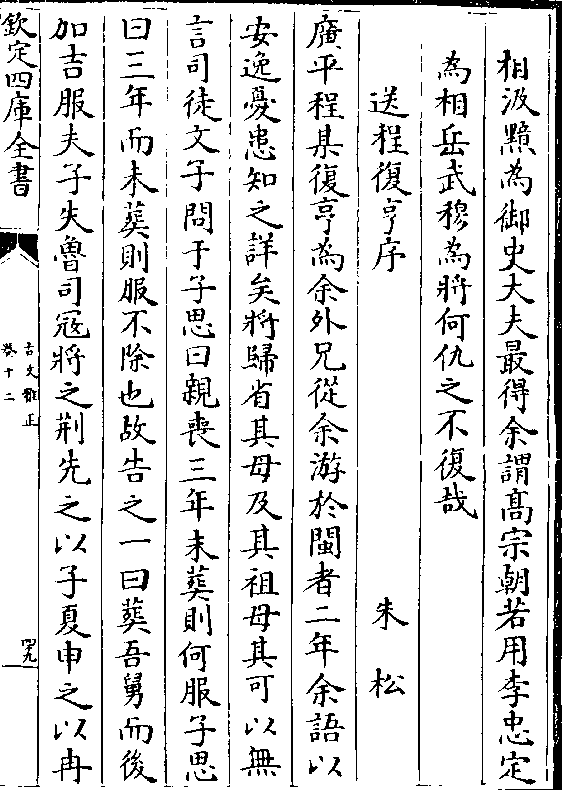 相汲黯為御史大夫最得余謂髙宗朝若用李忠定
為相岳武穆為將何仇之不復哉
送程復亨序　朱松
廣平程某復亨為余外兄從余游於閩者二年余語以
安逸憂患知之詳矣將歸省其母及其祖母其可以無
言司徒文子問于子思曰親喪三年未葬則何服子思
曰三年而未葬則服不除也故告之一曰葬吾舅而後
加吉服夫子失魯司冦將之荆先之以子夏申之以冉
欽定四庫全書
古文雅正
卷十二
四九